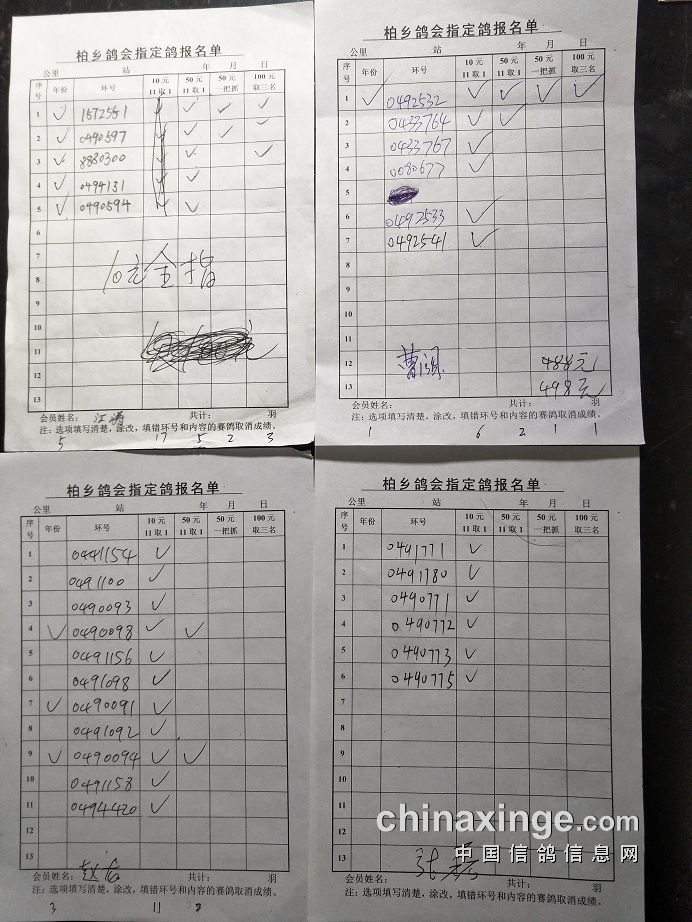 柏乡鸽会指定鸽报名单
公里 站 年 月 日
序号 年份 环号 10元 11取1 50元 11取1 50元 一把抓 100元 取三名
1 ✓ 1672551 ✓ ✓ ✓
2 ✓ 0490597 ✓ ✓
3 ✓ 8880300 ✓ ✓ ✓
4 ✓ 0494131 ✓ ✓
5 ✓ 0490594 ✓ ✓
6
7
8 10元全指
9
10
11
12
13
会员姓名: 江涛 共计: 羽
注:选项填写清楚,涂改,填错环号和内容的赛鸽取消成绩。
5 17 5 2 3
柏乡鸽会指定鸽报名单
公里 站 年 月 日
序号 年份 环号 10元 11取1 50元 11取1 50元 一把抓 100元 取三名
1 ✓ 0492532 ✓ ✓ ✓ ✓
2 0433764 ✓ ✓
3 0433767 ✓
4 0080677 ✓
5
6 0492533 ✓
7 0492541 ✓
8
9
10
11
12 488元
13 498元
会员姓名: 共计: 羽
注:选项填写清楚,涂改,填错环号和内容的赛鸽取消成绩。
1 6 2 1 1
柏乡鸽会指定鸽报名单
公里 站 年 月 日
序号 年份 环号 10元 11取1 50元 11取1 50元 一把抓 100元 取三名
1 0441154 ✓
2 0491100 ✓
3 0490093 ✓
4 ✓ 0490098 ✓ ✓
5 0491156 ✓
6 0491098 ✓
7 ✓ 0490091 ✓
8 0491092 ✓
9 ✓ 0490094 ✓ ✓
10 0491158 ✓
11 0494420 ✓
12
13
会员姓名: 共计: 羽
注:选项填写清楚,涂改,填错环号和内容的赛鸽取消成绩。
3 11
柏乡鸽会指定鸽报名单
公里 站 年 月 日
序号 年份 环号 10元 11取1 50元 11取1 50元 一把抓 100元 取三名
1 0491771 ✓
2 0491780 ✓
3 0490771 ✓
4 0490772 ✓
5 0490773 ✓
6 0490775 ✓
7
8
9
10
11
12
13
会员姓名: 共计: 羽
注:选项填写清楚,涂改,填错环号和内容的赛鸽取消成绩。
6
chinaxinge.com
中国信鸽信息网